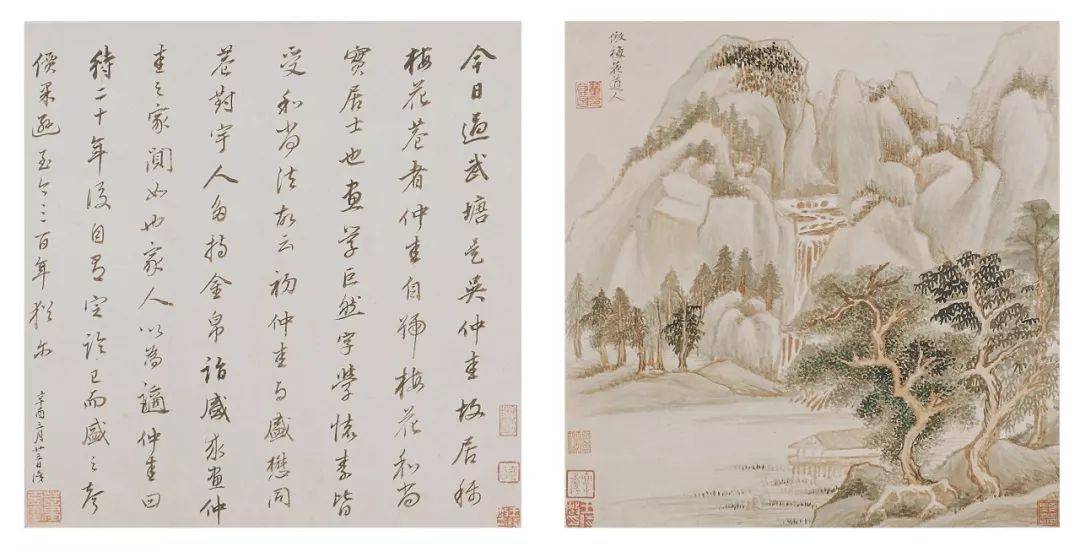 今日過武塘是吳仲圭故居稱
梅花菴者仲圭自號梅花和尚
實居士也畫學巨然字學懷素皆
受和尚法故云初仲圭與盛懋同
巷對宇人多持金帛詣盛求畫仲
圭之家闃如也家人以為謫仲圭曰
待二十年後自有定論已而盛之聲
價果遜至今三百年猶尔
辛酉三月廿三日識
倣梅花道人